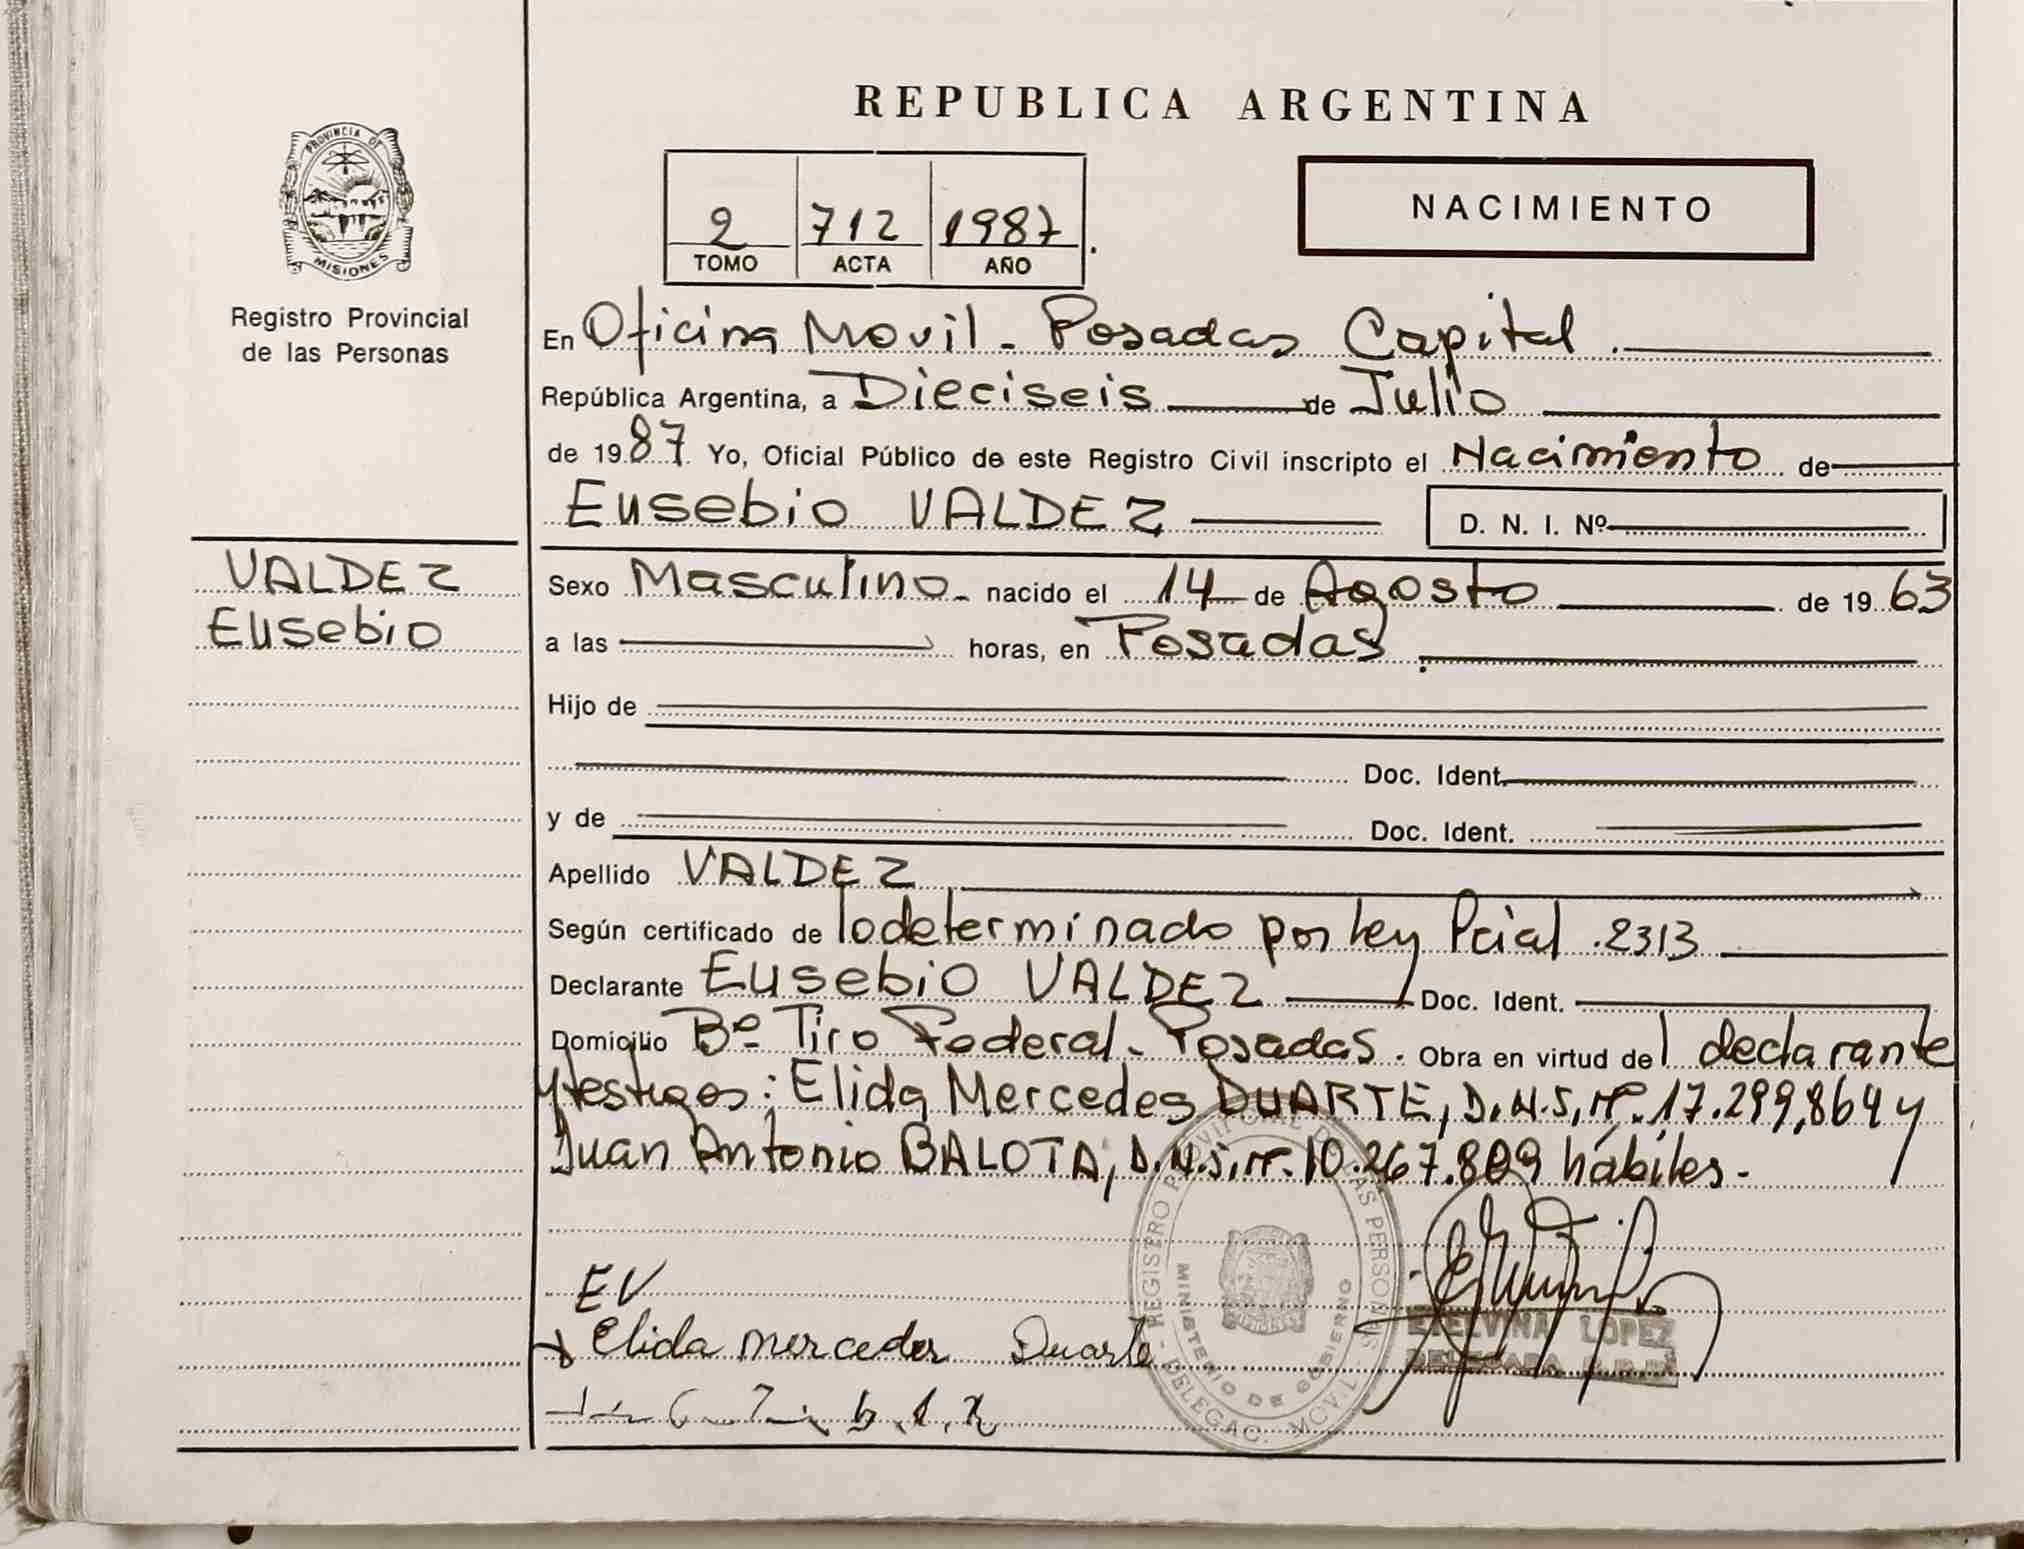 PROVINCIA DE
MISIONES
Registro Provincial
de las Personas
REPUBLICA ARGENTINA
2 712 1987
TOMO ACTA AÑO
NACIMIENTO
En Oficina Movil - Posadas Capital.
República Argentina, a Dieciseis de Julio
de 1987 Yo, Oficial Público de este Registro Civil inscripto el Nacimiento de
Eusebio VALDEZ D. N. I. Nº
VALDEZ
Eusebio
Sexo Masculino - nacido el 14 de Agosto de 1963
a las horas, en Posadas
Hijo de
Doc. Ident.
y de Doc. Ident.
Apellido VALDEZ
Según certificado de lo determinado por ley Pcial. 2313
Declarante Eusebio VALDEZ Doc. Ident.
Domicilio Bº Tiro Federal - Posadas. Obra en virtud del declarante
y testigos: Elida Mercedes DUARTE, D.N.I. Nº 17.299.864 y
Juan Antonio BALOTA, D.N.I. Nº 10.267.809 hábiles -
EV
Elida Mercedes Duarte
REGISTRO PROVINCIAL DE LAS PERSONAS
MINISTERIO DE GOBIERNO
- DELEGAC. MOVIL -
ETELVINA LOPEZ
DELEGADA